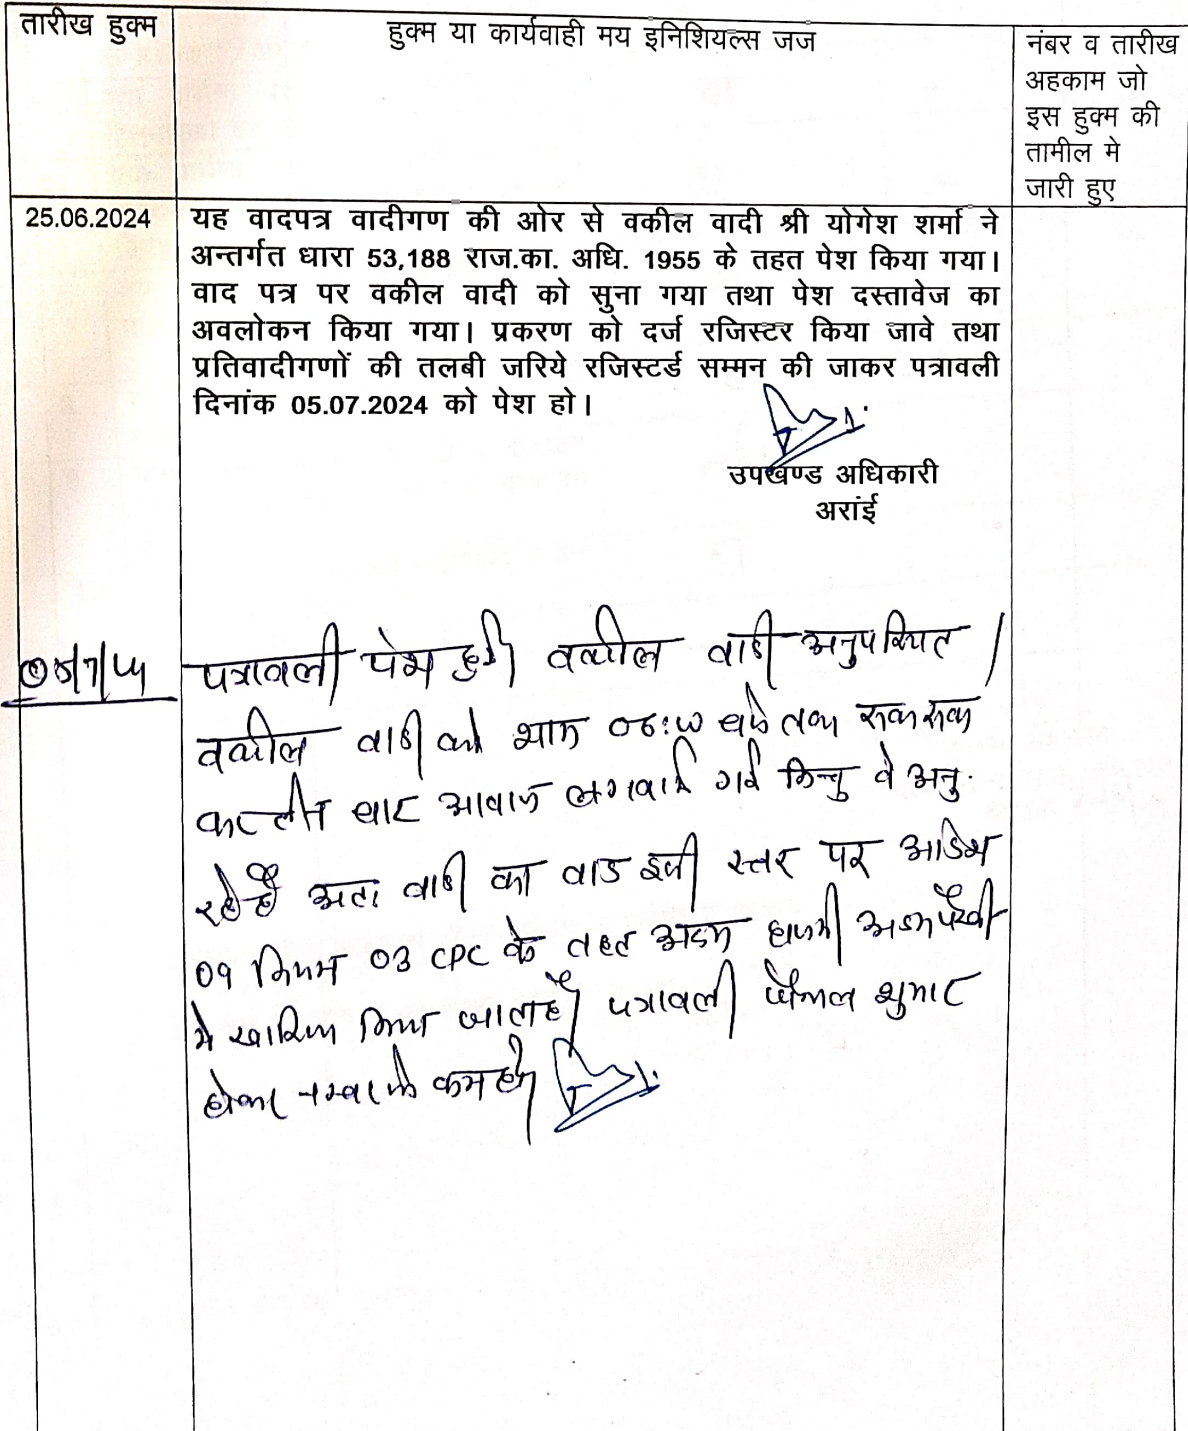 तारीख हुक्म
हुक्म या कार्यवाही मय इनिशियल्स जज
नंबर व तारीख
अहकाम जो
इस हुक्म की
तामील मे
जारी हुए
25.06.2024
यह वादपत्र वादीगण की ओर से वकील वादी श्री योगेश शर्मा ने
अन्तर्गत धारा 53,188 राज.का. अधि. 1955 के तहत पेश किया गया।
वाद पत्र पर वकील वादी को सुना गया तथा पेश दस्तावेज का
अवलोकन किया गया। प्रकरण को दर्ज रजिस्टर किया जावे तथा
प्रतिवादीगणों की तलबी जरिये रजिस्टर्ड सम्मन की जाकर पत्रावली
दिनांक 05.07.2024 को पेश हो।
उपखण्ड अधिकारी
अरांई
पत्रावली पेश हुई। वकील वादी अनुपस्थित।
वकील वादी को शाम 06:00 बजे तक रूक रूक
कर तीन बार आवाज लगवाई गई किन्तु वे अनु.
रहे है अतः वादी का वाद इसी स्तर पर आदेश
09 नियम 03 CPC के तहत अदम हाजरी अदम पैरवी
मे खारिज किया जाता है। पत्रावली फैसल शुमार
होकर नम्बर से कम हो।